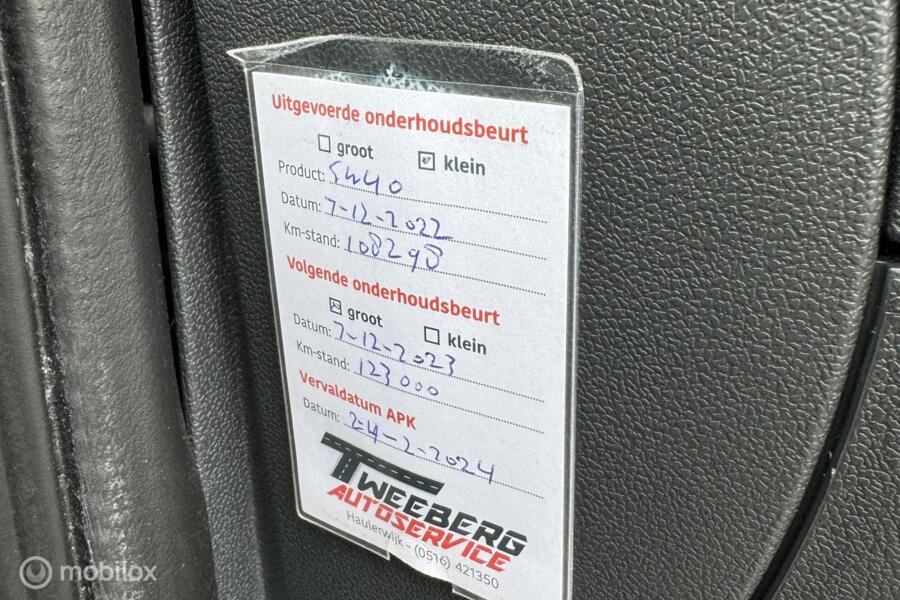 Uitgevoerde onderhoudsbeurt
groot klein
Product: 5W40
Datum: 7-12-2022
Km-stand: 108298
Volgende onderhoudsbeurt
groot klein
Datum: 7-12-2023
Km-stand: 123000
Vervaldatum APK
Datum: 24-2-2024
TWEEBERG
AUTOSERVICE
Haulerwijk - (0516) 421350
mobilox